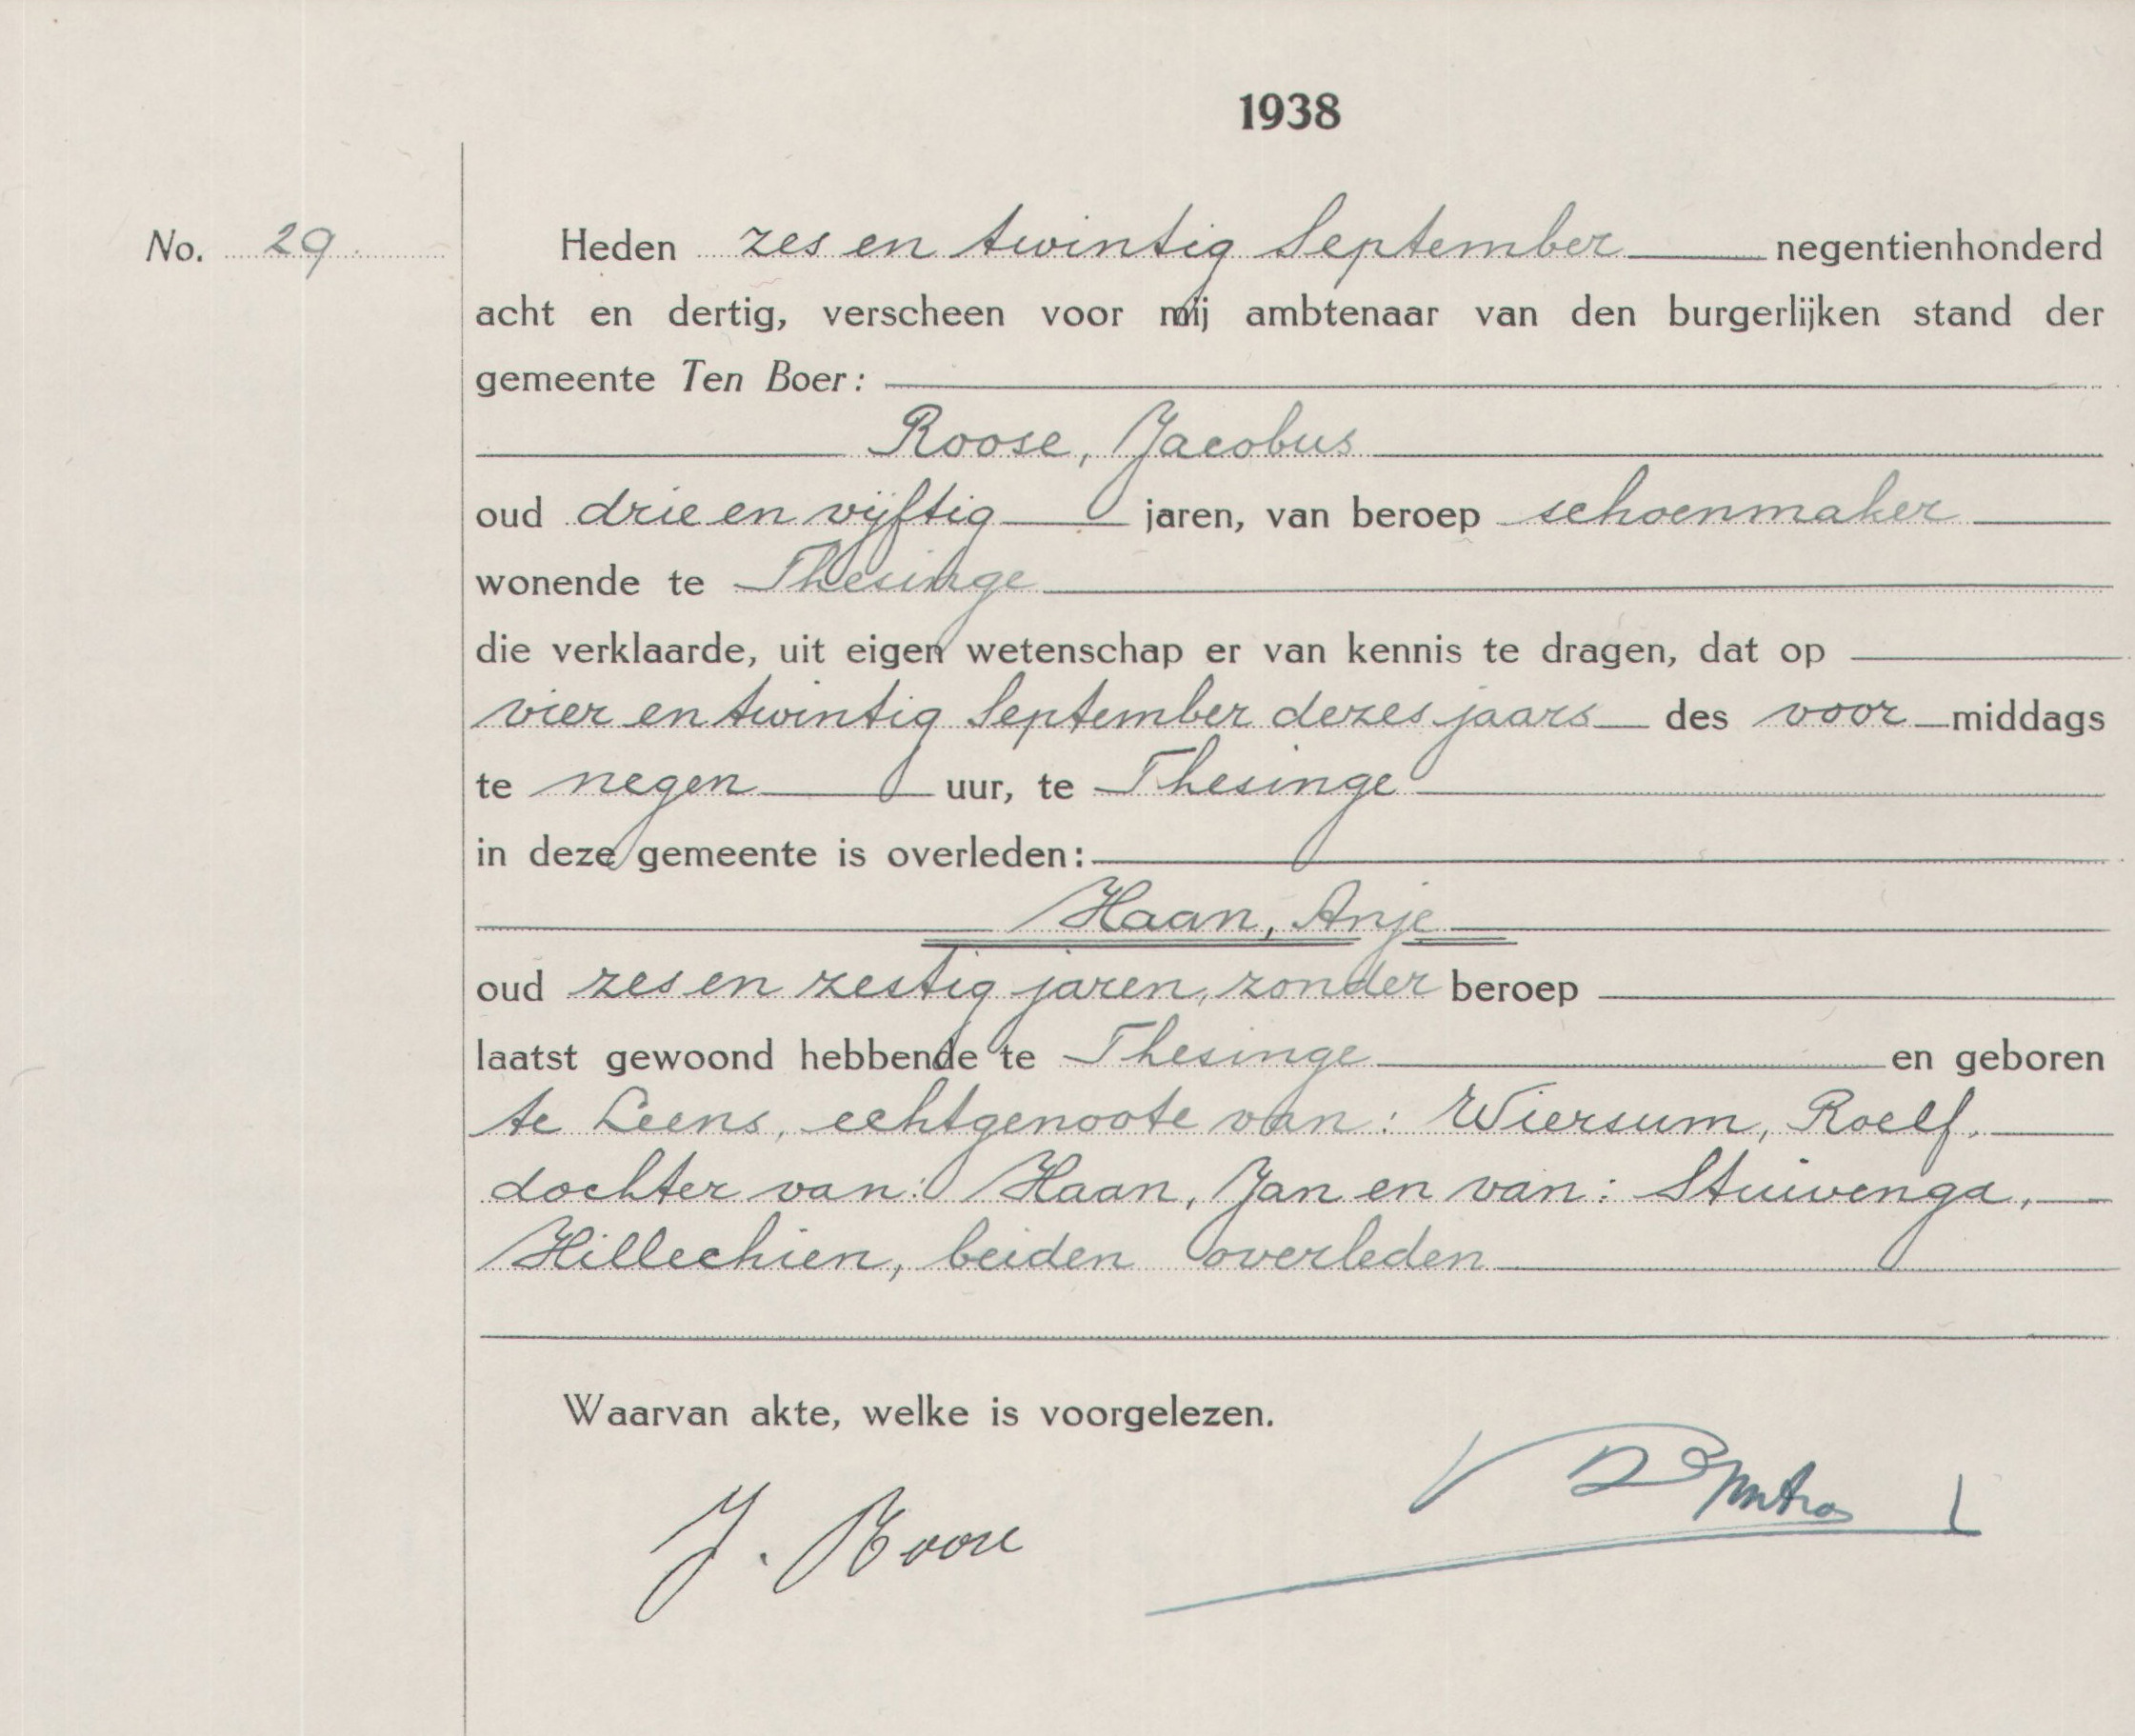 1938
No. 29
Heden zes en twintig September negentienhonderd
acht en dertig, verscheen voor mij ambtenaar van den burgerlijken stand der
gemeente Ten Boer:
Roose, Jacobus
oud drie en vijftig jaren, van beroep schoenmaker
wonende te Thesinge
die verklaarde, uit eigen wetenschap er van kennis te dragen, dat op
vier en twintig September dezes jaars des voor middags
te negen uur, te Thesinge
in deze gemeente is overleden:
Haan, Anje
oud zes en zestig jaren, zonder beroep
laatst gewoond hebbende te Thesinge en geboren
te Leens, echtgenoote van: Wiersum, Roelf.
dochter van: Haan, Jan en van: Stuivenga,
Hillechien, beiden overleden
Waarvan akte, welke is voorgelezen.
J. Roose